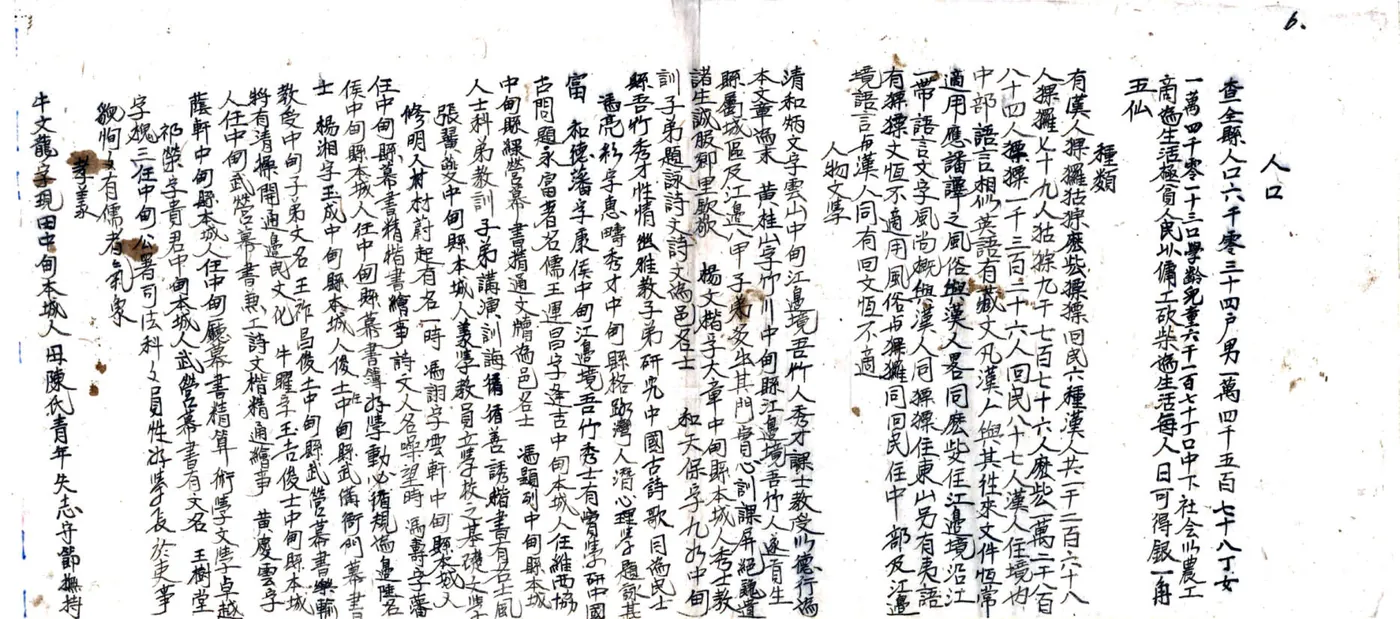 6.
人口
查全縣人口六千零三十四户男一萬四千五百七十八丁女
一萬四千零一十三口學齡兒童六千一百七十丁口中下社會以農工
商為生活極貧人民以傭工砍柴為生活每人日可得銀一角
五仙
種類
有漢人猓玀牯猔麽些猓猓回民六種漢人共一千二百六十八
人猓玀七十九人牯猔九千七百七十六人麽些一萬二千八百
八十四人猓猓一千三百二十六人回民八十七人漢人住境也
中部語言相似英語有藏文凡漢人與其往來文件恆常
適用應譒譯之風俗與漢人畧同麽些住江邊境沿江
一帶語言文字風尚概與漢人同猓猓住東山另有夷語
有猓猓文恆不適用風俗与猓玀同回民住中部及江邊
境語言与漢人同有回文恆不適
人物文學
清和炳文字雲山中甸江邊境吾竹人秀才課士教受以德行為
本文章為末 黃桂山字竹川中甸縣江邊境吾竹人遂有生
縣屬城區及江邊六甲子弟多出其門實心訓課屏絕
諸生誠服鄉里歌敬 楊文楷字大章中甸縣本城人秀士教
訓子弟題詠詩文詩文為邑名士 和天保字九如中甸
縣吾竹秀才性情幽雅教子弟研究中國古詩歌同為民士
馮亮彩字惠疇秀才中甸縣格路灣人潛心理學題詠甚
富 和德藩字康侯中甸江邊境吾竹秀士有實學研中國
古問題永富者名儒王運昌字逢吉中甸本城人任維西協
中甸縣經營幕書楷通文牘為邑名士 馮題列中甸縣本城
人士科弟教訓子弟講演訓誨循循善誘楷書有名士風
張翼夔中甸縣本城人義學教員立學校之基礎文學
修明人材蔚起有名一時 馮詡字雲軒中甸縣本城人
任中甸縣幕書精楷書繪事詩文人名噪望時 馮壽字藩
侯中甸縣本城人任中甸縣幕書簿好學動必循規為邊陲名
士 楊湘字玉成中甸縣本城人後士中甸縣武備衙門幕書
教受中甸子弟文名王祚昌俊士中甸縣武營幕書樂輸
將有清操開通邊民文化 牛曜字玉吉後士中甸縣本城
人任中甸武營幕書兼工詩文楷精通繪事 黃慶雲字
蔭軒中甸縣本城人任中甸廳幕書精算術學文學卓越
祁榮字貴君中甸本城人武營幕書有文名 王樹堂
字槐三任中甸公署司法科科員性好學長於吏事
貌恂恂有儒者氣象
孝義
牛文龍字現田中甸本城人母陳氏青年失志守節撫持